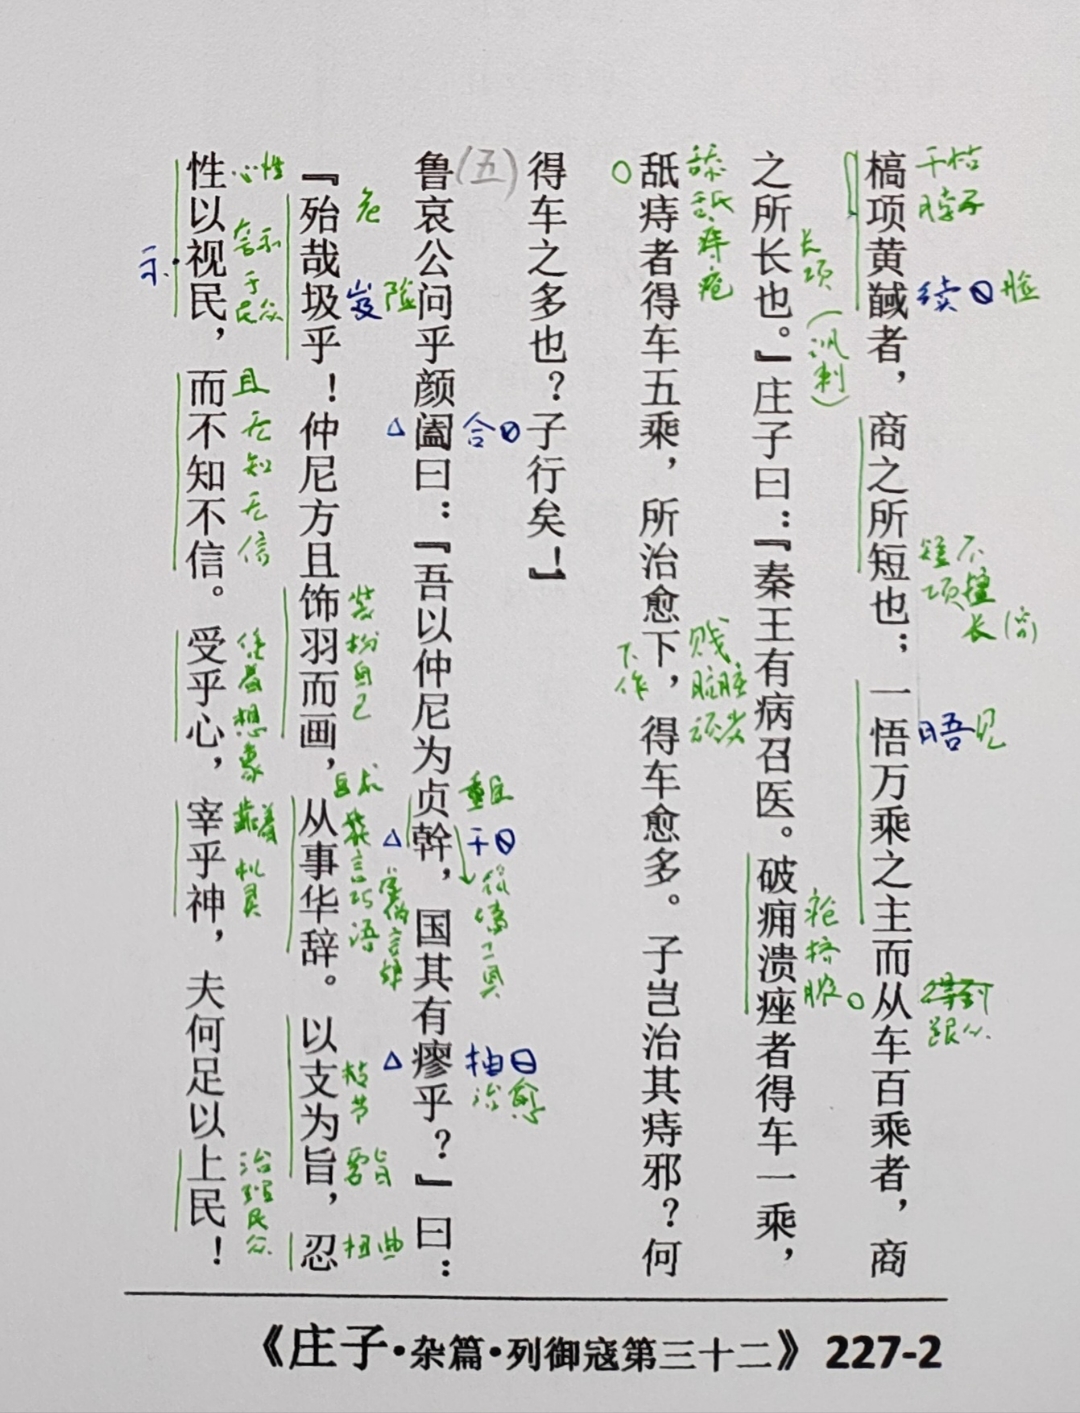 槁项黄馘者，商之所短也；一悟万乘之主而从车百乘者，商
干枯
脖子
续
脸
短项
不擅长
晤见
得到
跟从
之所长也。』庄子曰：『秦王有病召医。破痈溃痤者得车一乘，
长项
（讽刺）
疮挤脓
舐痔者得车五乘，所治愈下，得车愈多。子岂治其痔邪？何
舔舐痔疮
下作
贱
肮脏
得车之多也？子行矣！』
（五）
鲁哀公问乎颜阖曰：『吾以仲尼为贞幹，国其有瘳乎？』曰：
合
重臣
干
筑墙工具
抽
治愈
『殆哉圾乎！仲尼方且饰羽而画，从事华辞。以支为旨，忍
危
岌
险
装扮自己
花言巧语
枝节
要旨
扭曲
性以视民，而不知不信。受乎心，宰乎神，夫何足以上民！
心性
示
示于民众
且无知无信
凭着想象
靠着机灵
治理民众
《庄子·杂篇·列御寇第三十二》 227-2